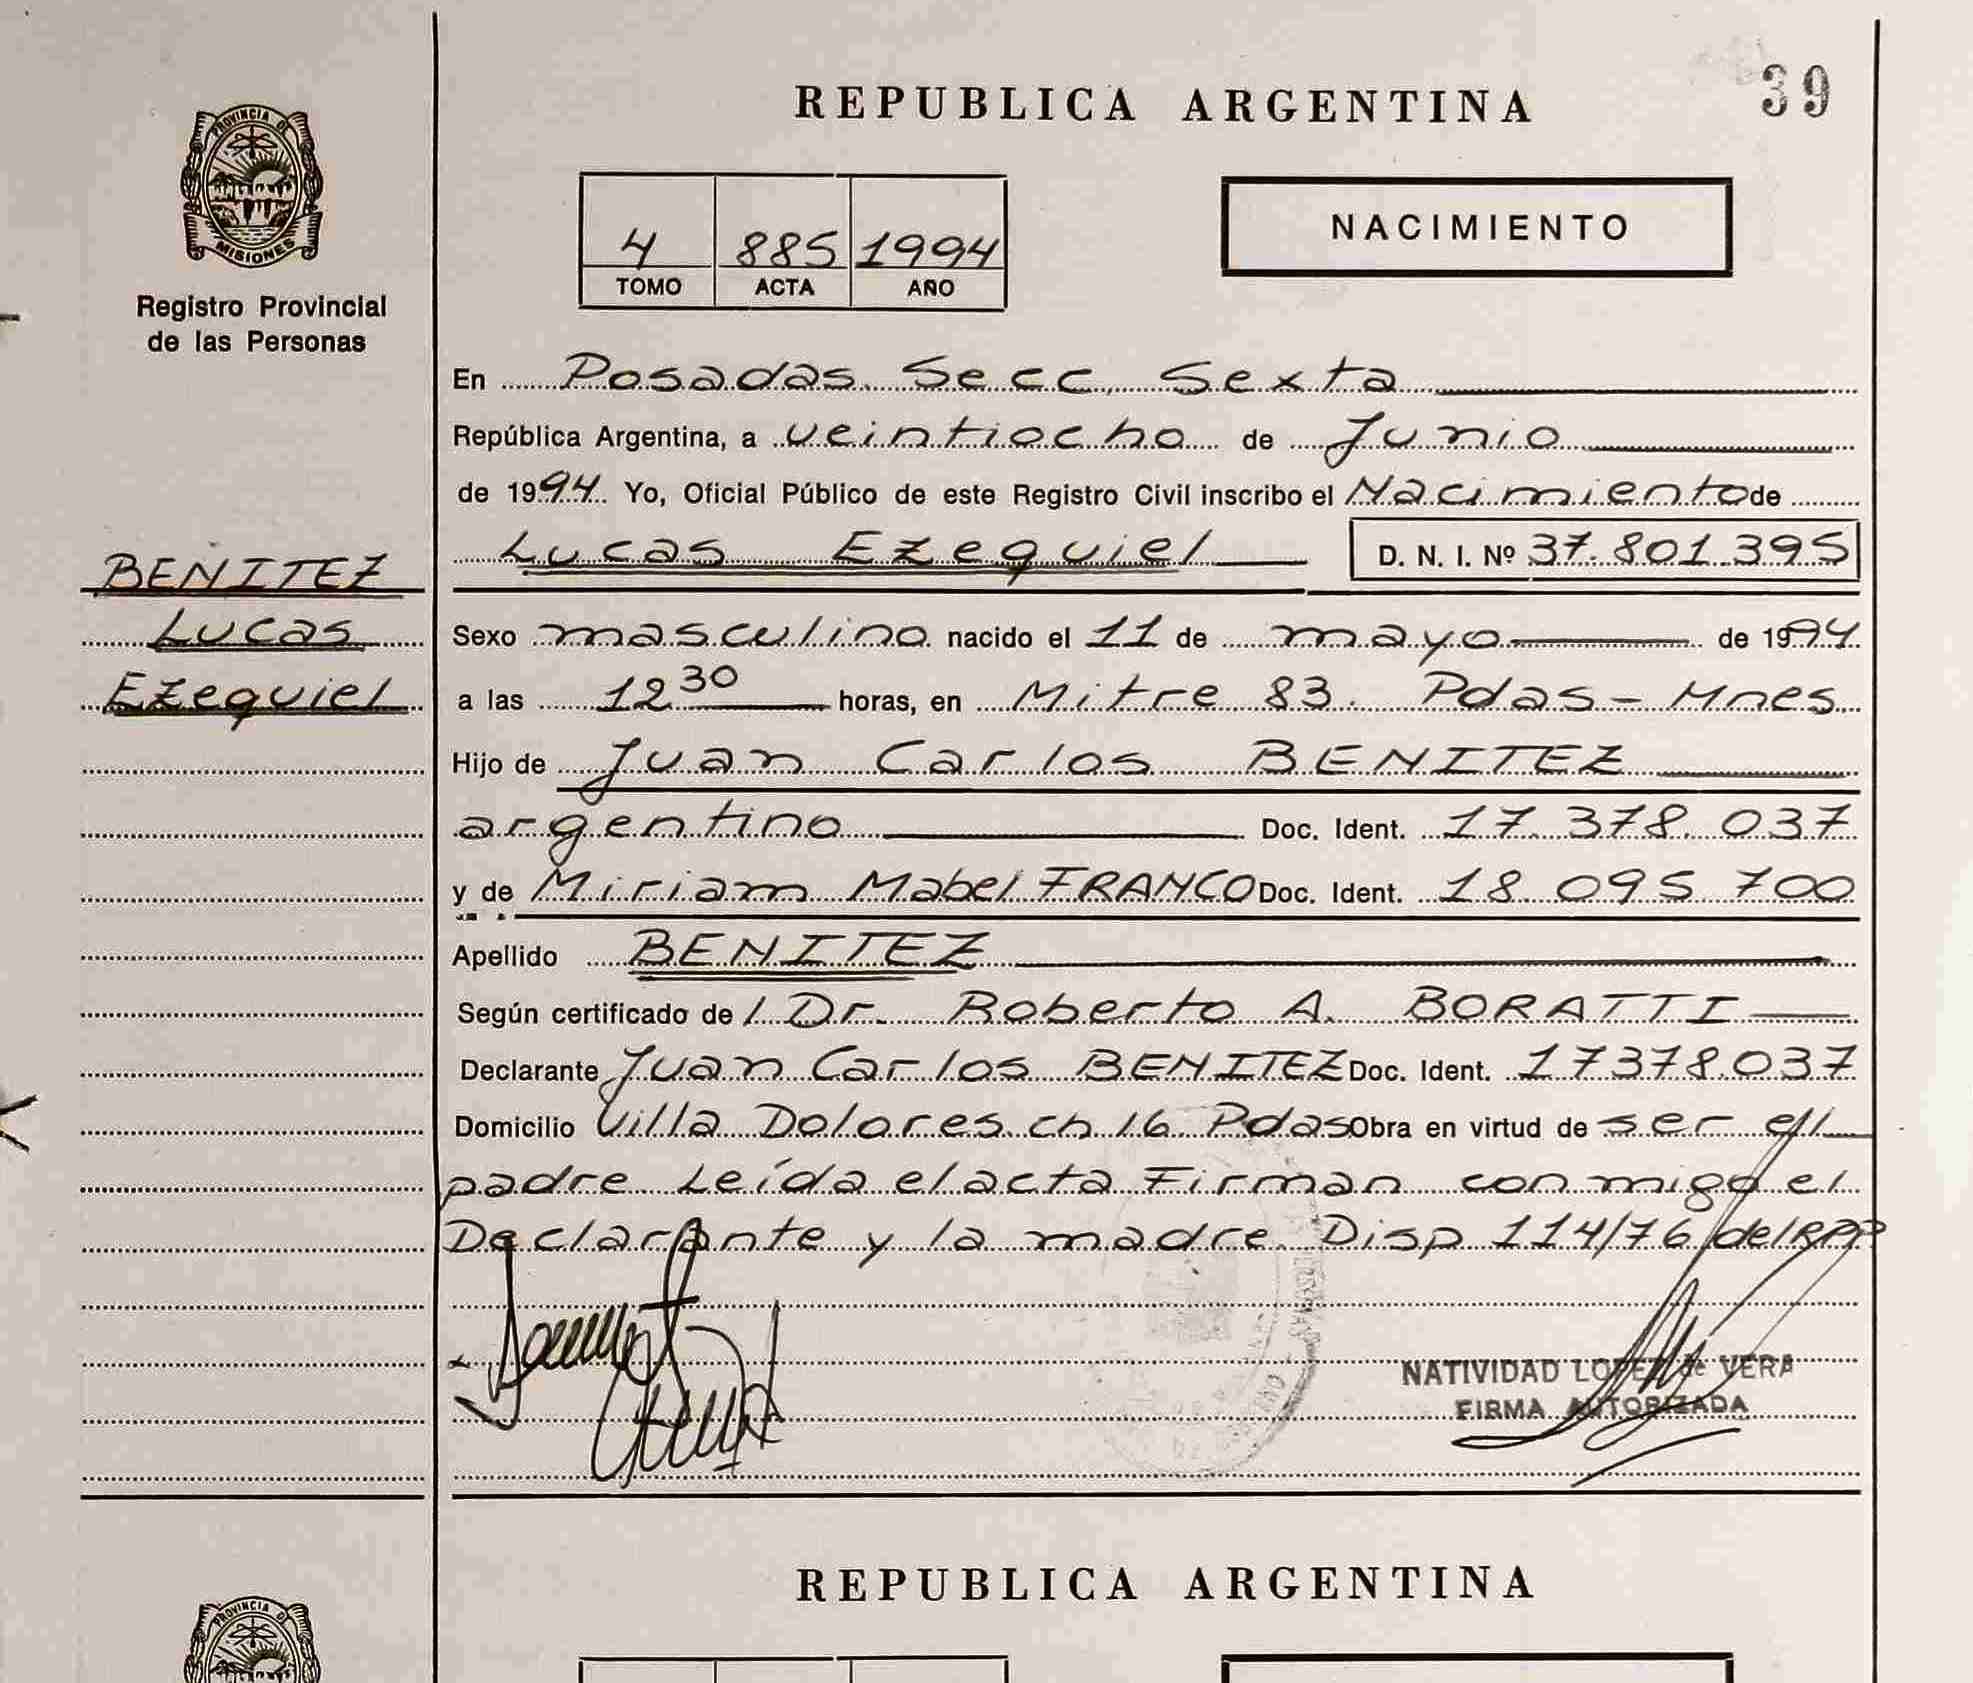 REPUBLICA ARGENTINA
39
PROVINCIA DE
MISIONES
Registro Provincial
de las Personas
4 885 1994
TOMO ACTA AÑO
NACIMIENTO
En Posadas Secc. Sexta
República Argentina, a veintiocho de Junio
de 1994. Yo, Oficial Público de este Registro Civil inscribo el Nacimiento de
Lucas Ezequiel D. N. I. Nº 37.801.395
BENITEZ
Lucas
Ezequiel
Sexo masculino nacido el 11 de mayo de 1994
a las 12 30 horas, en Mitre 83. Pdas - Mnes
Hijo de Juan Carlos BENITEZ
argentino Doc. Ident. 17.378.037
y de Miriam Mabel FRANCO Doc. Ident. 18.095.700
Apellido BENITEZ
Según certificado de l Dr. Roberto A. BORATTI
Declarante Juan Carlos BENITEZ Doc. Ident. 17378.037
Domicilio Villa Dolores ch 16 Pdas Obra en virtud de ser el
padre Leída el acta Firman conmigo el
Declarante y la madre. Disp 114/76 del RPP
NATIVIDAD LOPEZ de VERA
FIRMA AUTORIZADA
REPUBLICA ARGENTINA
PROVINCIA DE